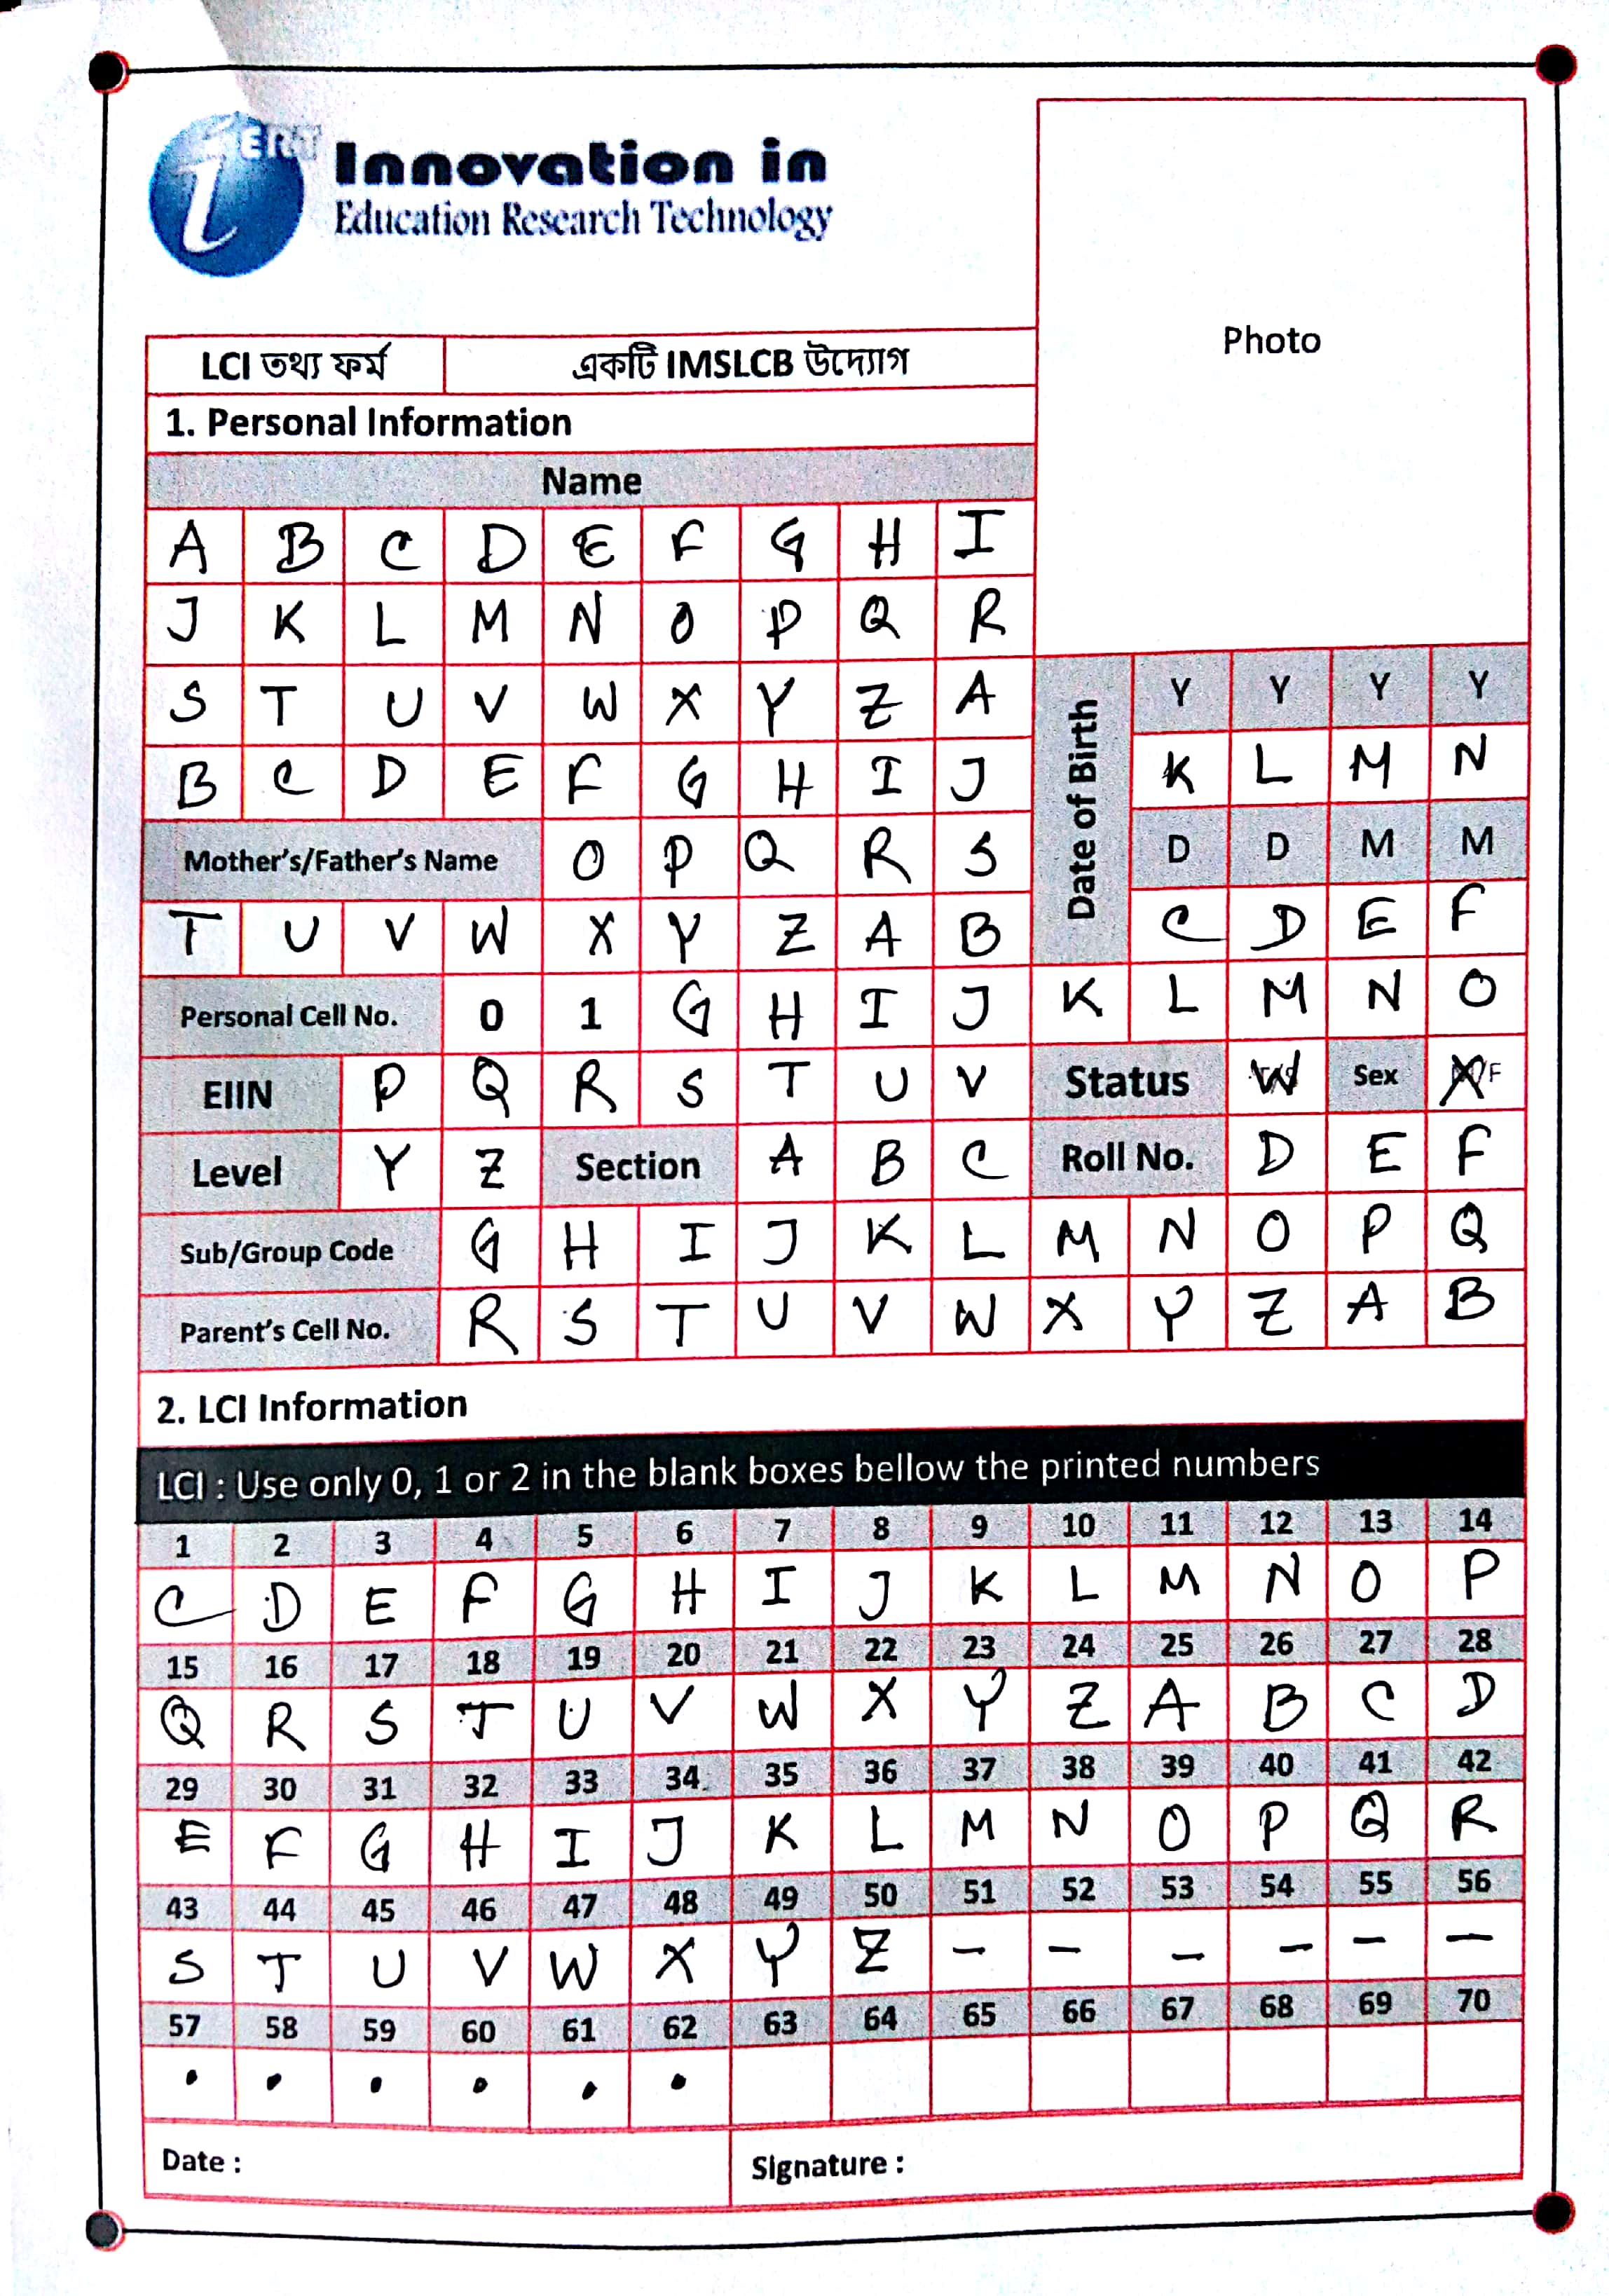 iERT
Innovation in
Education Research Technology
Photo
LCI তথ্য ফর্ম একটি IMSLCB উদ্যোগ
1. Personal Information
Name
A B C D E F G H I
J K L M N O P Q R
S T U V W X Y Z A
B C D E F G H I J
Date of Birth
Y Y Y Y
K L M N
D D M M
C D E F
Mother's/Father's Name O P Q R S
T U V W X Y Z A B
Personal Cell No. 0 1 G H I J K L M N O
EIIN P Q R S T U V Status W Sex X /F
Level Y Z Section A B C Roll No. D E F
Sub/Group Code G H I J K L M N O P Q
Parent's Cell No. R S T U V W X Y Z A B
2. LCI Information
LCI : Use only 0, 1 or 2 in the blank boxes bellow the printed numbers
1 2 3 4 5 6 7 8 9 10 11 12 13 14
C D E F G H I J K L M N O P
15 16 17 18 19 20 21 22 23 24 25 26 27 28
Q R S T U V W X Y Z A B C D
29 30 31 32 33 34 35 36 37 38 39 40 41 42
E F G H I J K L M N O P Q R
43 44 45 46 47 48 49 50 51 52 53 54 55 56
S T U V W X Y Z – – – – – –
57 58 59 60 61 62 63 64 65 66 67 68 69 70
. . . . . .
Date : Signature :